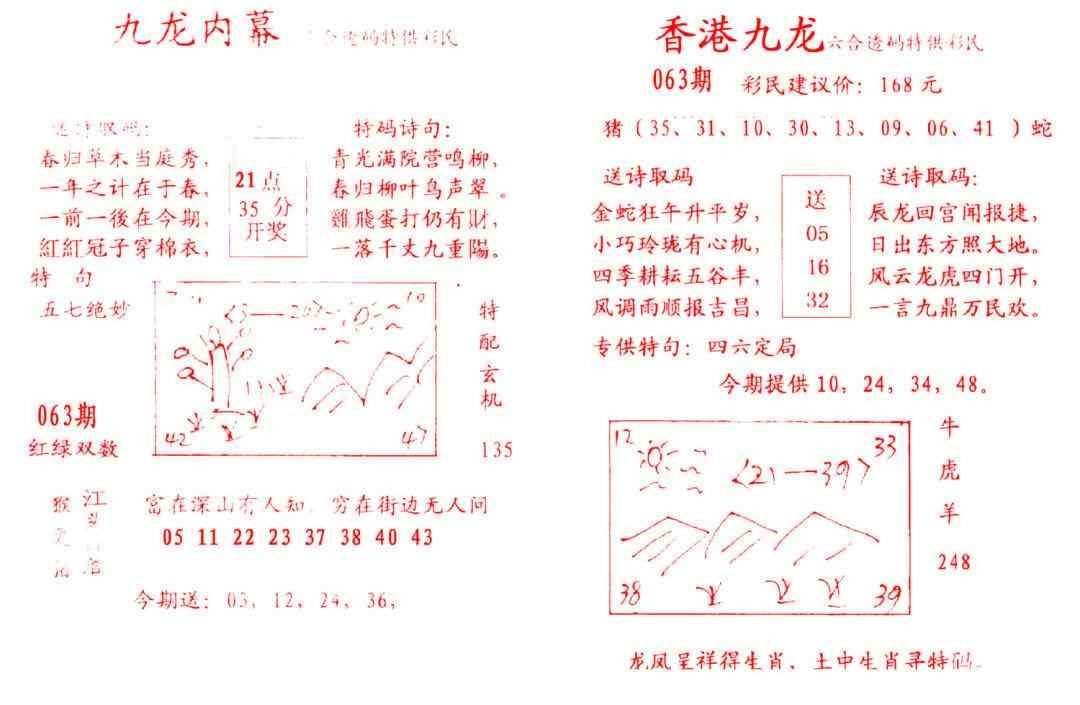 九龙内幕
六合透码特供彩民
送诗取码:
春归草木当庭秀,
一年之计在于春,
一前一後在今期,
紅紅冠子穿棉衣,
21点
35 分
开奖
特码诗句:
青光满院营鸣柳,
春归柳叶鸟声翠。
雞飛蛋打仍有財,
一落千丈九重陽。
特 句
五七绝妙
063期
红绿双数
10
42
47
特配玄机
135
猴
富在深山有人知, 穷在街边无人问
05 11 22 23 37 38 40 43
今期送: 03, 12, 24, 36,
香港九龙六合透码特供彩民
063期 彩民建议价: 168 元
猪 (35、31、10、30、13、09、06、41 ) 蛇
送诗取码
金蛇狂午升平岁,
小巧玲珑有心机,
四季耕耘五谷丰,
风调雨顺报吉昌,
送
05
16
32
送诗取码:
辰龙回宫闻报捷,
日出东方照大地。
风云龙虎四门开,
一言九鼎万民欢。
专供特句: 四六定局
今期提供 10, 24, 34, 48。
12
33
<21—39>
38
39
牛
虎
羊
248
龙凤呈祥得生肖、土中生肖寻特码。